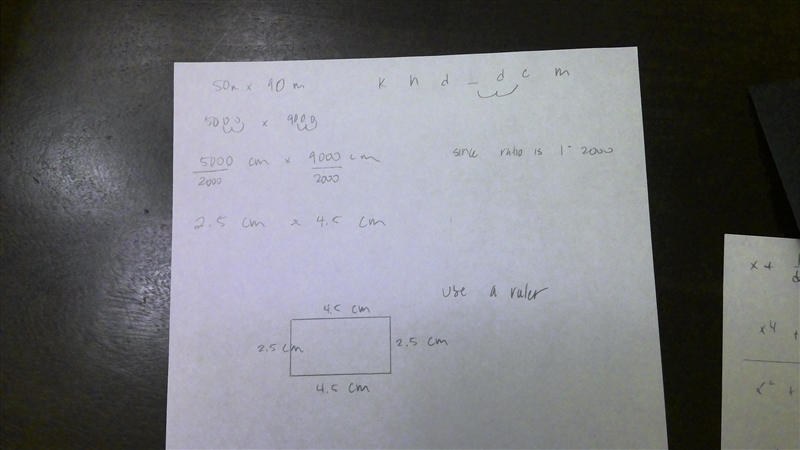 50m x 90 m
k h d _ d c m
5000 x 9000
5000 cm x 9000 cm
2000 2000
since ratio is 1:2000
2.5 cm x 4.5 cm
use a ruler
4.5 cm
2.5 cm
2.5 cm
4.5 cm
x +
x4 +
+